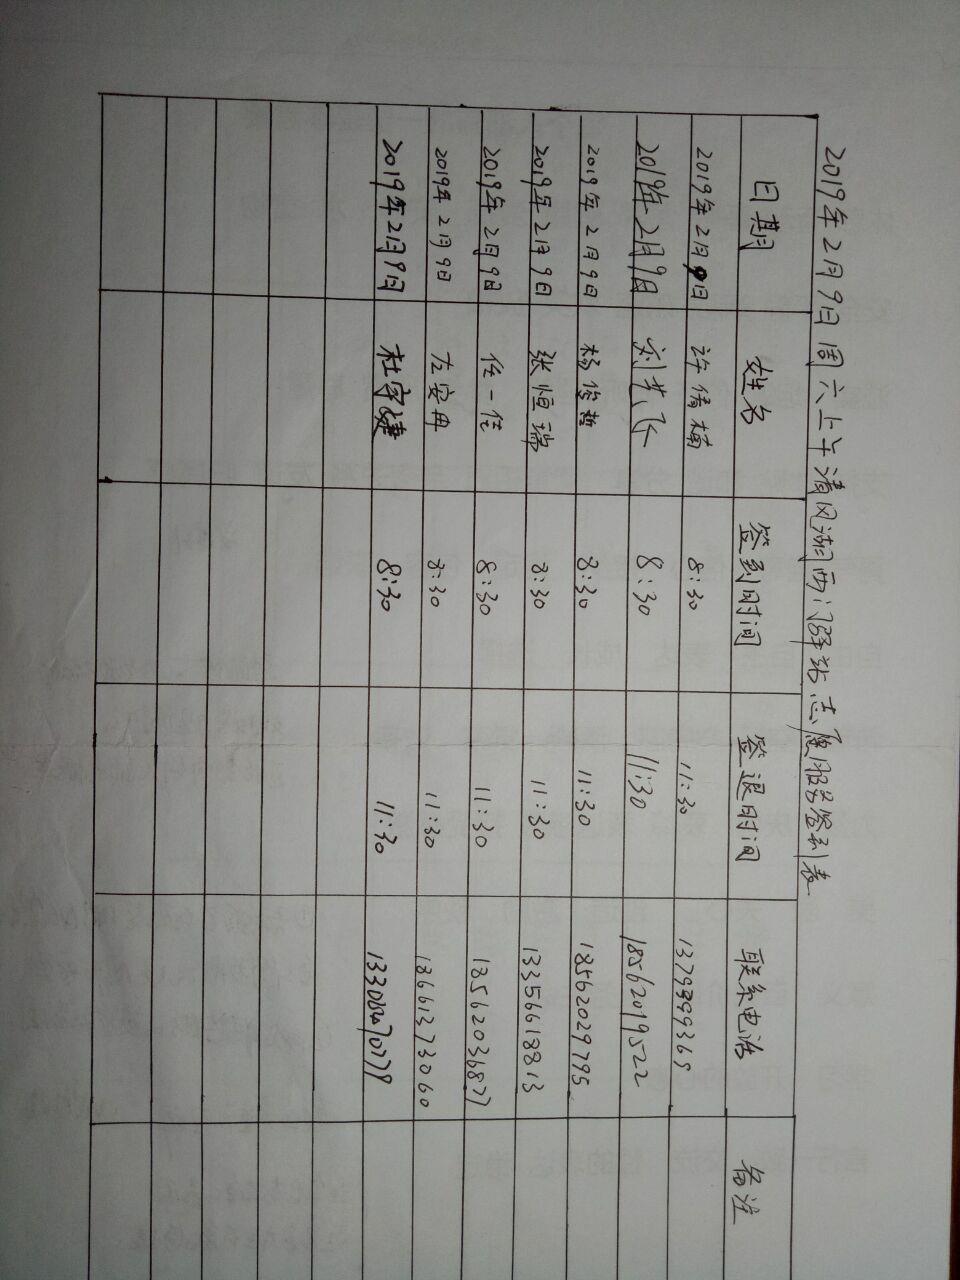 2019年2月9日周六上午清风湖西门驿站志愿服务签到表
日期 姓名 签到时间 签退时间 联系电话 备注
2019年2月9日 许倩楠 8:30 11:30
2019年2月9日 刘艺飞 8:30 11:30 18562019522
2019年2月9日 杨俊哲 8:30 11:30 18562029795
2019年2月9日 张恒瑞 8:30 11:30 13356618813
2019年2月9日 任一佳 8:30 11:30 18562036877
2019年2月9日 左安冉 8:30 11:30 18661373060
2019年2月9日 杜宇婕 8:30 11:30